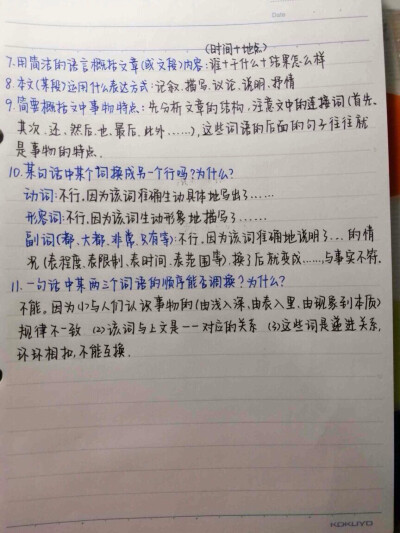 Date
(时间+地点)
7.用简洁的语言概括文章(或文段)内容:谁+干什么+结果怎么样
8.本文(某段)运用什么表达方式:记叙、描写、议论、说明、抒情
9.简要概括文中事物特点:先分析文章的结构,注意文中的连接词(首先、
其次、还、然后、也、最后、此外……),这些词语的后面的句子往往就
是事物的特点.
10.某句话中某个词换成另一个行吗?为什么?
动词:不行,因为该词准确生动具体地写出了……
形容词:不行,因为该词生动形象地描写了……
副词(都、大都、非常、只有等):不行,因为该词准确地说明了…的情
况(表程度、表限制、表时间、表范围等),换了后就变成……,与事实不符.
11.一句话中某两三个词语的顺序能否调换?为什么?
不能。因为(1)与人们认识事物的(由浅入深、由表入里、由现象到本质)
规律不一致 (2)该词与上文是一一对应的关系 (3)这些词是递进关系,
环环相扣,不能互换.
KOKUYO